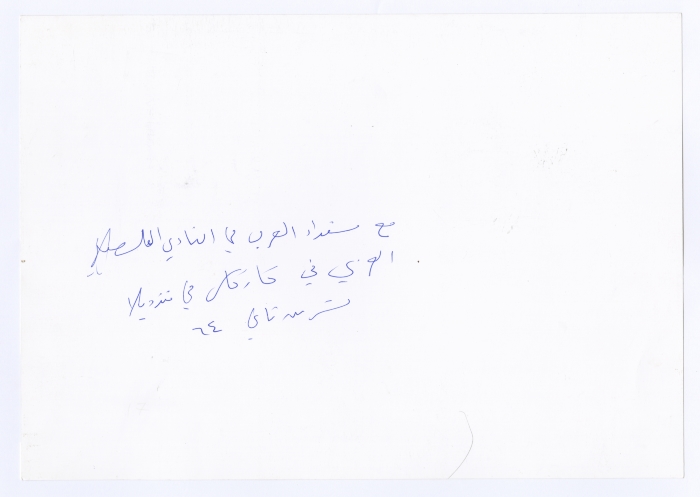 مع سفراء العرب في النادي الفلسطيني
العربي في كاراكاس في فنزويلا
تشرين ثاني ٦٤